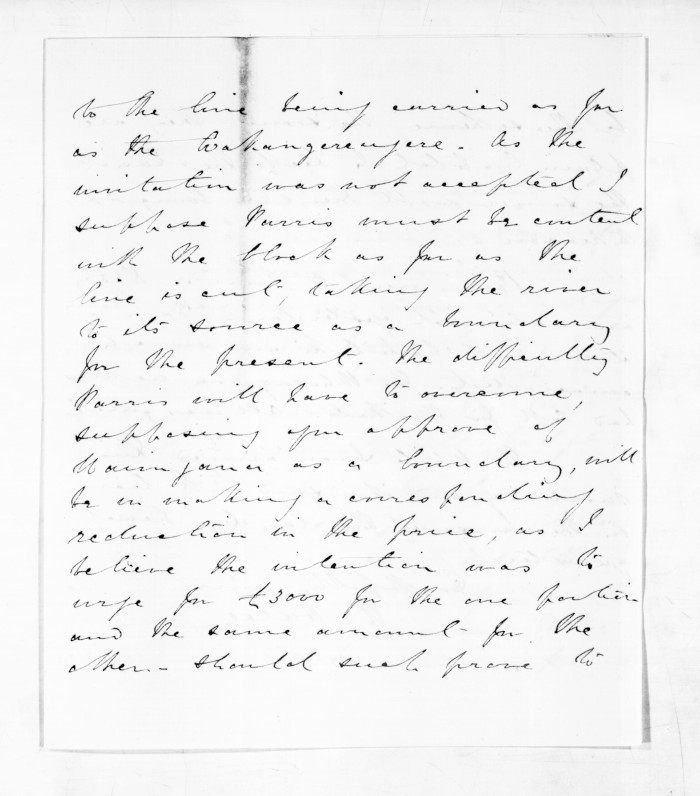 to the line being carried as far
as the Wahangerengere - As the
invitation was not accepted I
suppose Parris must be content
with the block as far as the
line is cut, taking the river
to its source as a boundary
for the present. The difficulty
Parris will have to overcome,
supposing you approve of
as a boundary, will
be in making a corresponding
reduction in the price, as I
believe the intention was to
urge for £3000 for the one portion
and the same amount for the
other - should such prove to